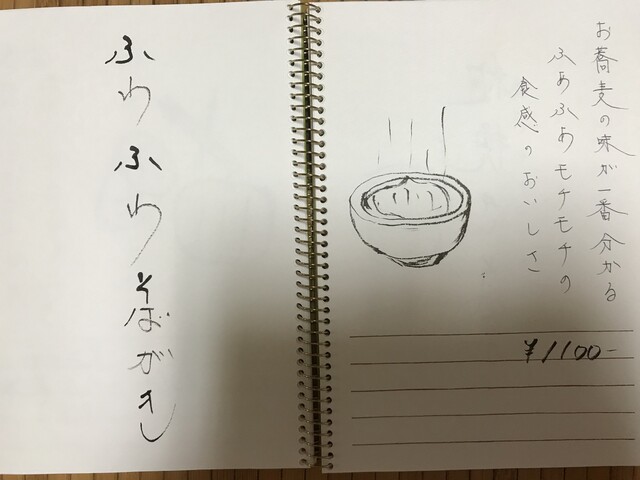 ふわふわそばがき
お蕎麦の味が一番分かる
ふあふあモチモチの
食感のおいしさ
¥1100-